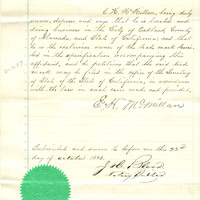 E. H. McMillan, being duly
sworn, deposes and says that he is located and
doing business in the City of Oakland, County
of Alameda, and State of California; and that
he is the exclusive owner of the trade mark
in the specification accompanying this
affidavit, and he petitions that the said trade
mark may be filed in the office of the Secretary
of State of the State of California, in accordance
with the law in such case made and provided.
E. H. McMillan
Subscribed and sworn to before me this 22nd
day of October 1892.
Notary Public